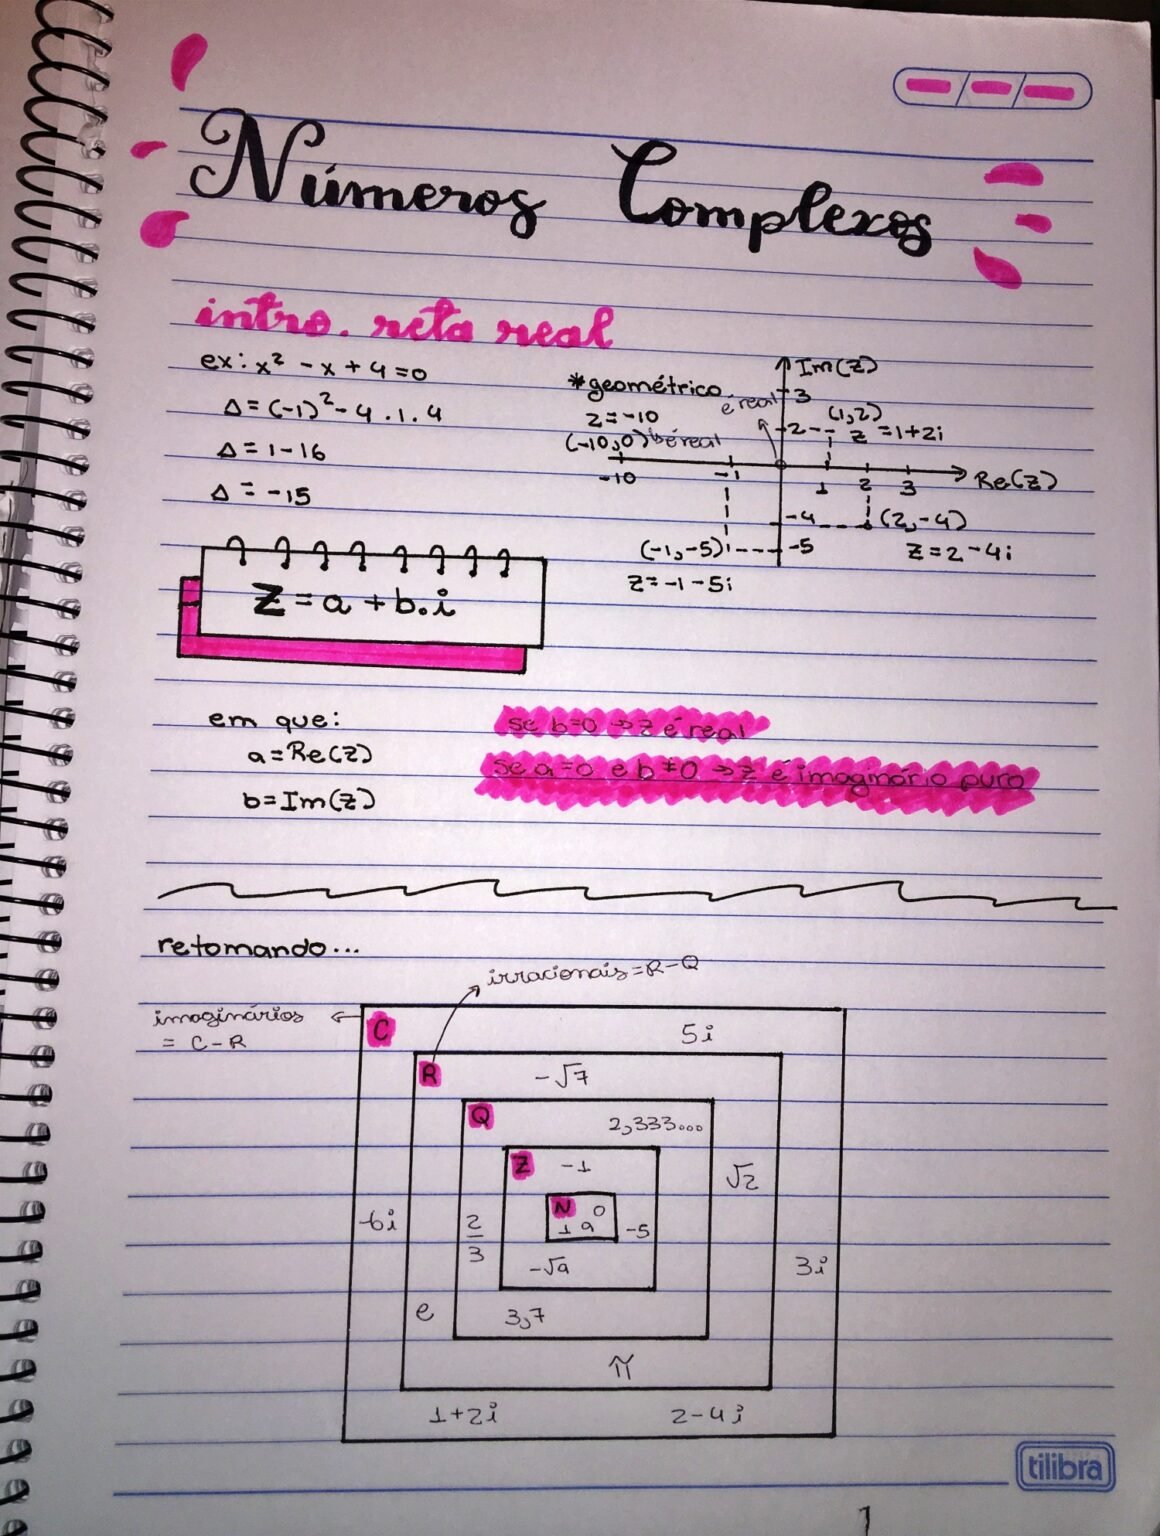 Números Complexos
intro. reta real
ex: x² - x + 4 = 0
Δ = (-1)² - 4 . 1 . 4
Δ = 1 - 16
Δ = -15
*geométrico
z = -10
(-10,0) é real
é real
Im(z)
3
2
(1,2)
z = 1+2i
-10
-1
1
2
3
Re(z)
-4
(2,-4)
(-1,-5)
-5
z = 2-4i
z = -1-5i
Z = a + b.i
em que:
a = Re(z)
b = Im(z)
se b=0 → z é real
se a=0 e b≠0 → z é imaginário puro
retomando...
irracionais = R-Q
imaginários
= C-R
C
5i
R
-√7
Q
2,333...
Z
-1
√2
N
0
1 9
-5
-6i
2
3
-√9
3i
e
3,7
π
1+2i
2-4i
tilibra
1